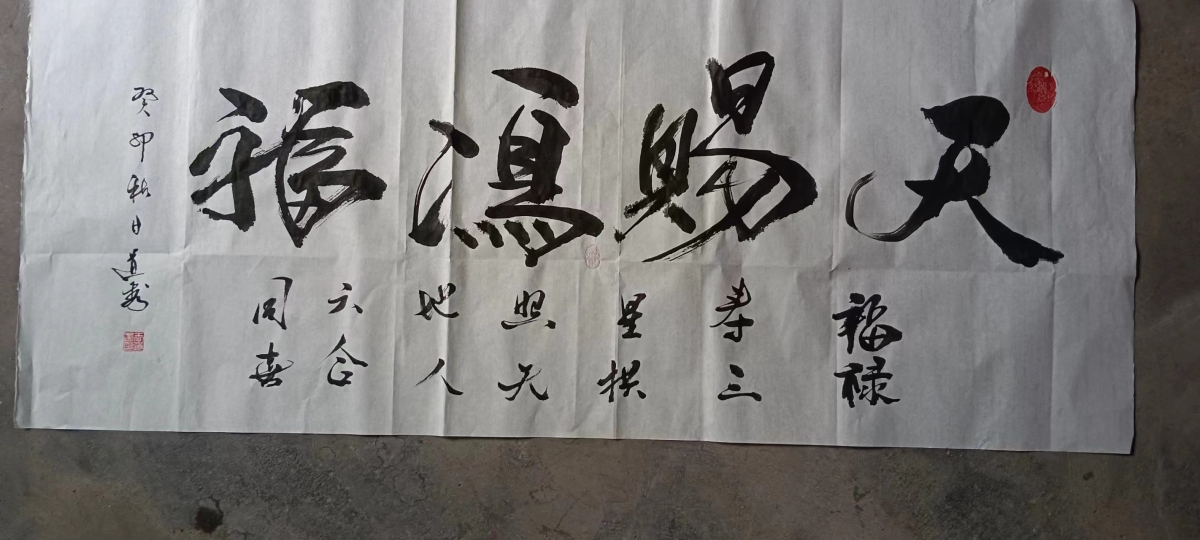 天賜鴻福
福禄
寿三
星拱
照天
地人
六合
同喜
癸卯秋日道